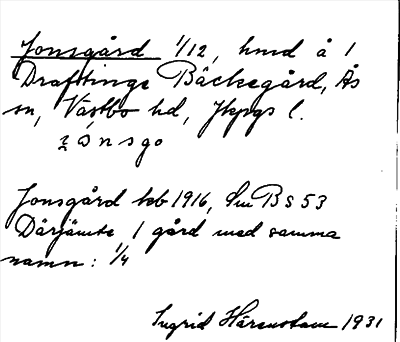 Jonsgård 1/12, hmd å 1
Draftinge Bäckegård, Ås
sn, Västbo hd, Jkpgs l.
Jonsgård kb 1916, Sm BS 53
Därjämte 1 gård med samma
namn: 1/4
Ingrid Härenstam 1931